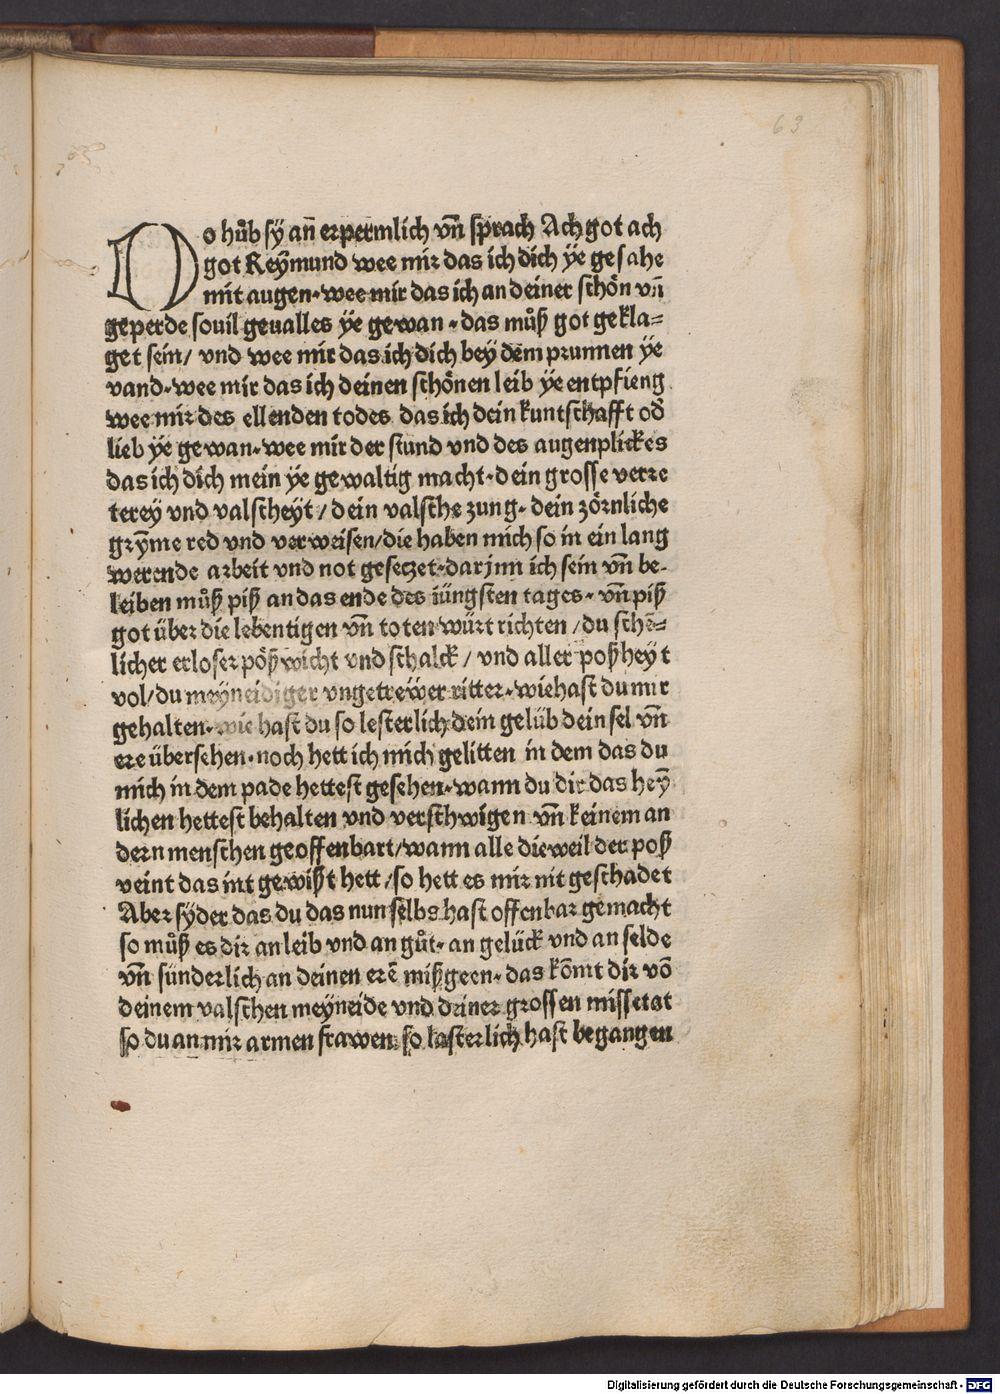 63
Do hůb sy̋ an̄ erpermlich vn̄ sprach Ach got ach
got Rey̋mund wee mir das ich dich y̋e gesahe
mit augen·wee mir das ich an deiner schön vn̄
geperde souil geualles y̋e gewan·das můß got gekla=
get sein/ vnd wee mir das ich dich bey̋ dem prunnen y̋e
vand·wee mir das ich deinen schönen leib y̋e entpfieng
wee mir des ellenden todes das ich dein kuntschafft od̄
lieb y̋e gewan·wee mir der stund vnd des augenplickes
das ich dich mein y̋e gewaltig macht·dein grosse verre
terey̋ vnd valschey̋t/dein valsche zung·dein zörnliche
gry̋me red vnd verweisen/die haben mich so in ein lang
werende arbeit vnd not gesetzet·darjnn ich sein vn̄ be-
leiben můß piß an das ende des iüngsten tages·vn̄ piß
got über die lebentigen vn̄ toten würt richten/du sche=
licher erloser pößwicht vnd schalck/ vnd aller poßhey̋t
vol/du mey̋neidiger vngetrewer ritter·wie hast du mir
gehalten·wie hast du so lesterlich dein gelüb dein sel vn̄
ere übersehen·noch hett ich mich gelitten in dem das du
mich in dem pade hettest gesehen·wann du dir das hey̋
lichen hettest behalten vnd verschwigen vn̄ keinem an
dern menschen geoffenbart/wann alle dieweil der poß
veint das nit gewißt hett/so hett es mir nit geschadet
Aber sy̋der das du das nun selbs hast offenbar gemacht
so můß es dir an leib vnd an gůt·an gelück vnd an selde
vn̄ sünderlich an deinen erē mißgeen·das kōmt dir vō
deinem valschen mey̋neide vnd deiner grossen missetat
so du an mir armen frawen so lasterlich hast begangen
Digitalisierung gefördert durch die Deutsche Forschungsgemeinschaft - DFG